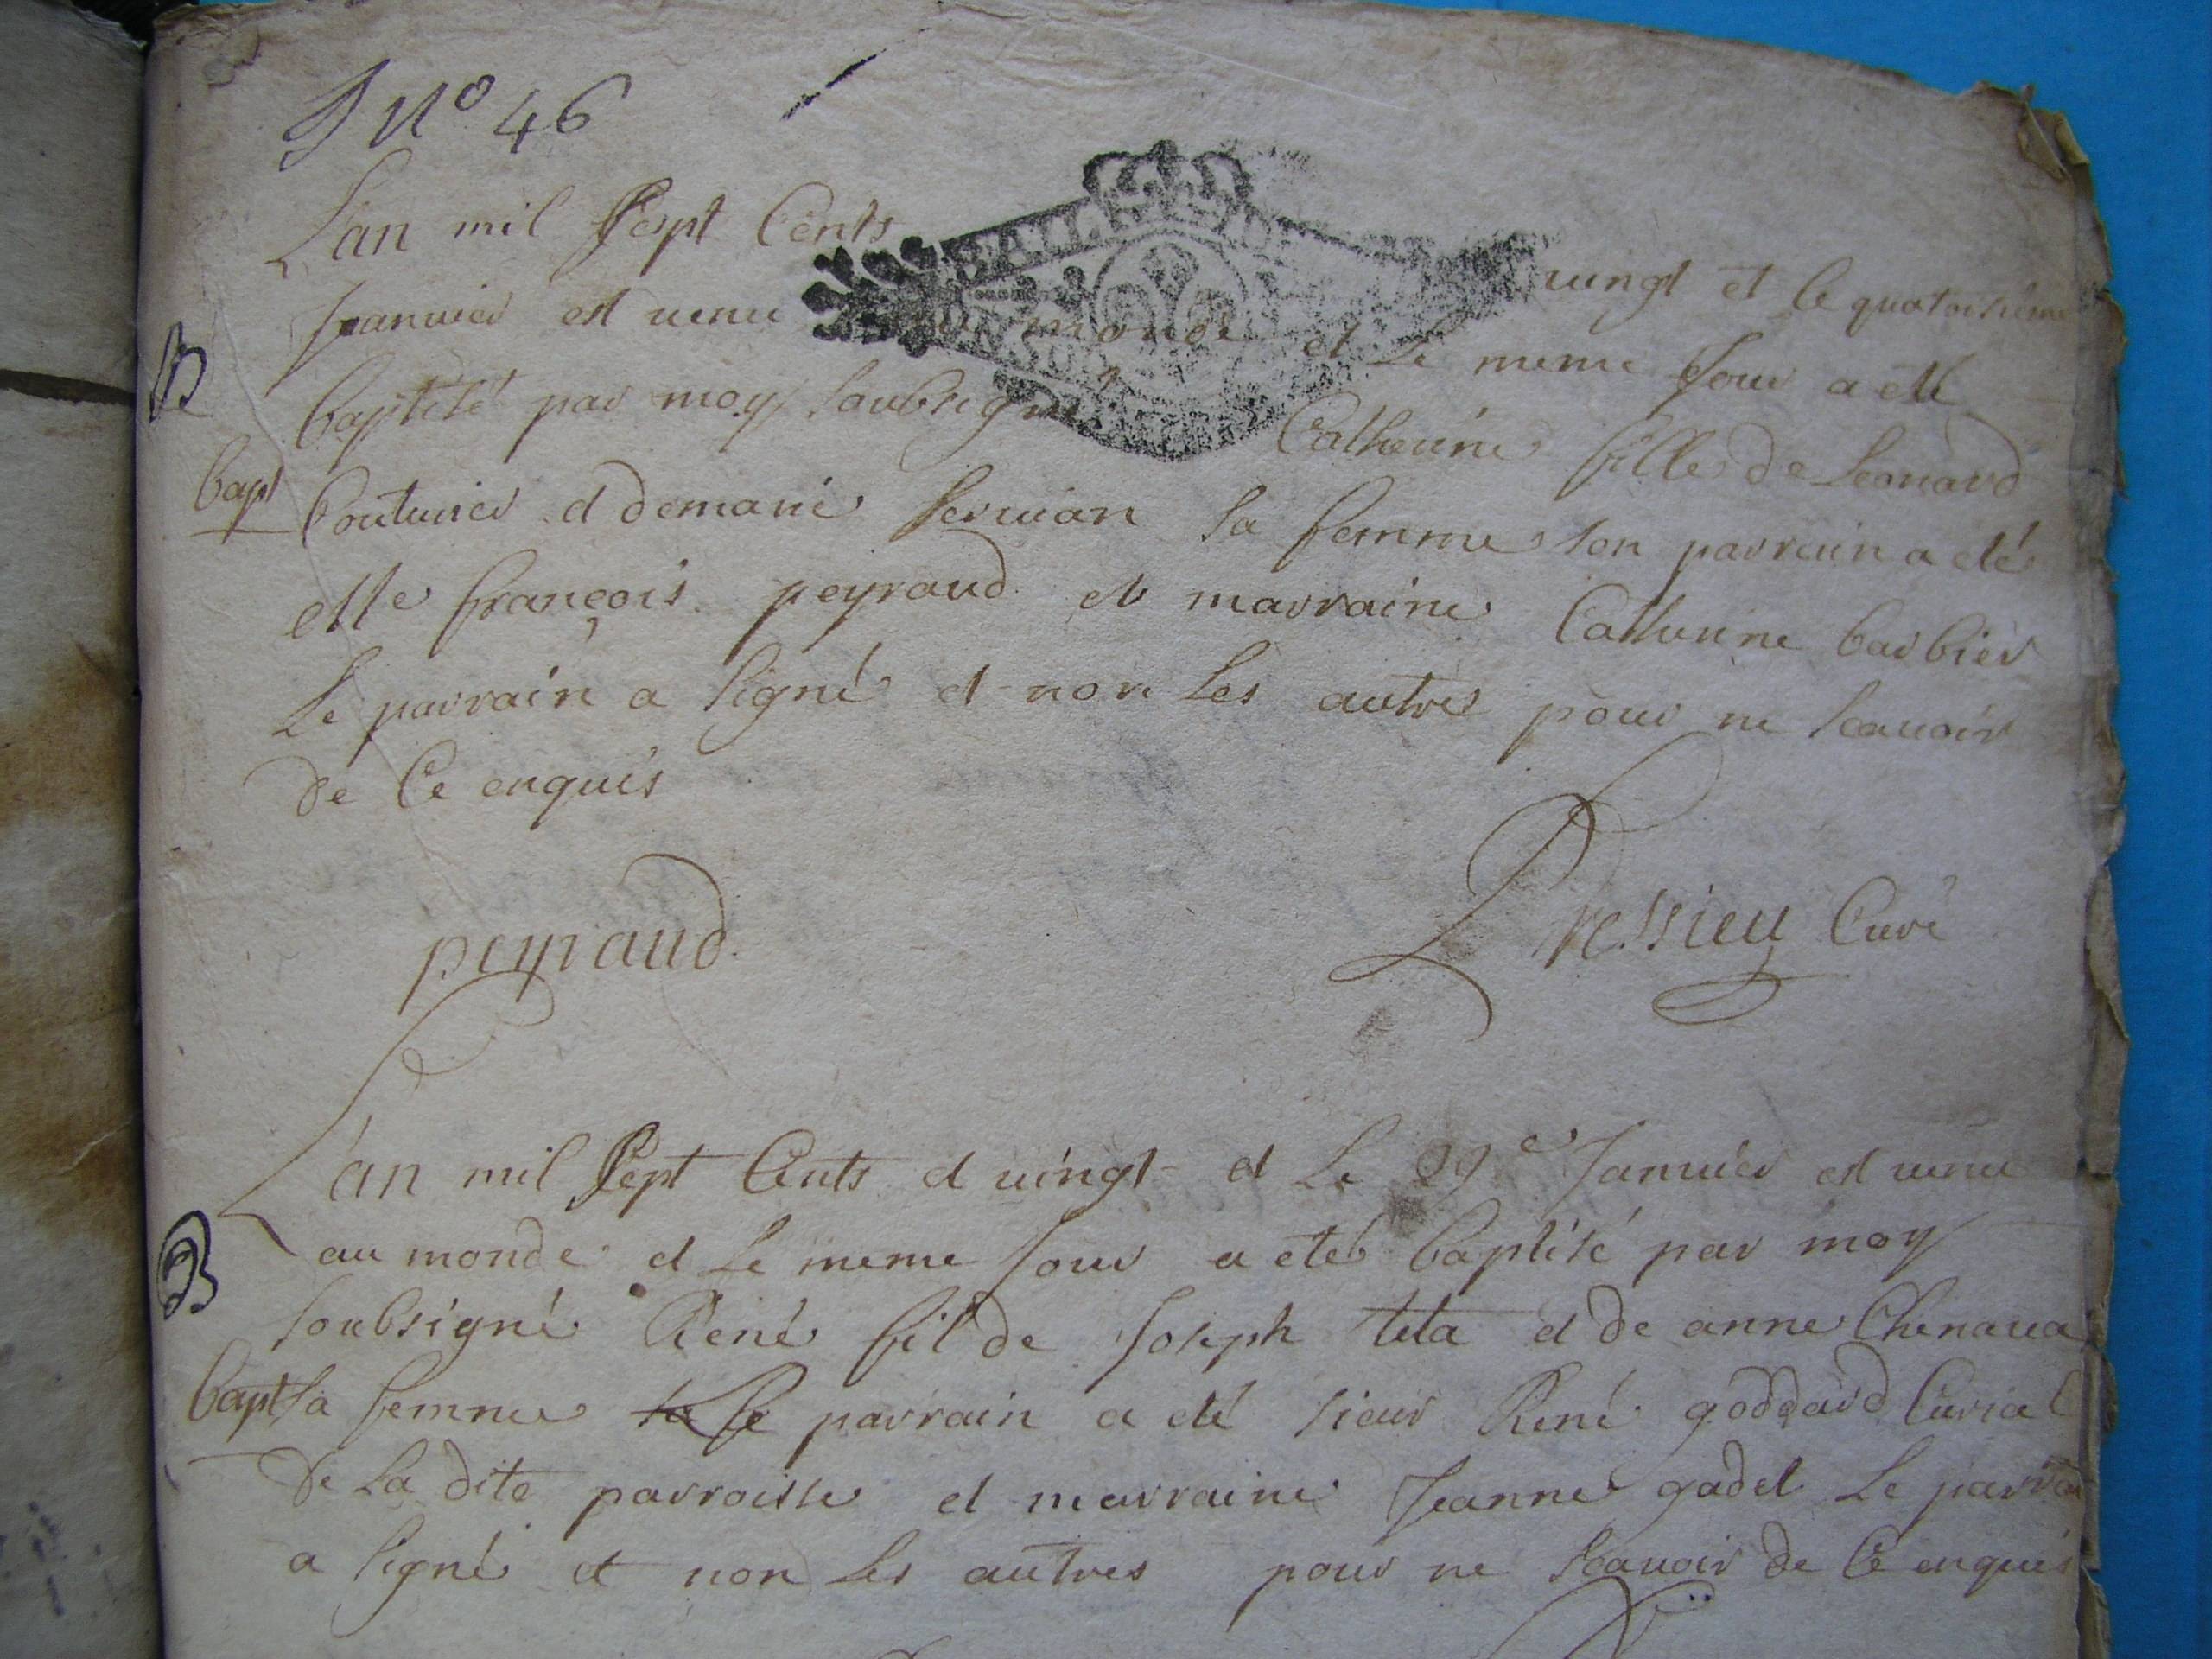 N° 46
L'an mil Sept Cents vingt et le quatorsieme
Januier est uenu au monde et le meme Jour a eté
B
baptisé par moy soubsigné Catherine fille de Leonard
bapt
Couturier et de marie seruian sa femme son parrain a eté
Mre françois peyraud et marraine Catherine barbier
Le parrain a signé et non les autres pour ne scauoir
de Ce enquis
peyraud. Pressieu Curé
L'an mil Sept Cents et uingt et le 29e Januier est uenu
au monde et le meme Jour a eté baptisé par moy
B
soubsigné René fil de Joseph teta et de anne Chenaua
bapt
sa femme le parrain a eté sieur René goddard Curial
de la dite parroisse et marraine Jeanne gadet Le parrain
a signé et non les autres pour ne scauoir de Ce enquis